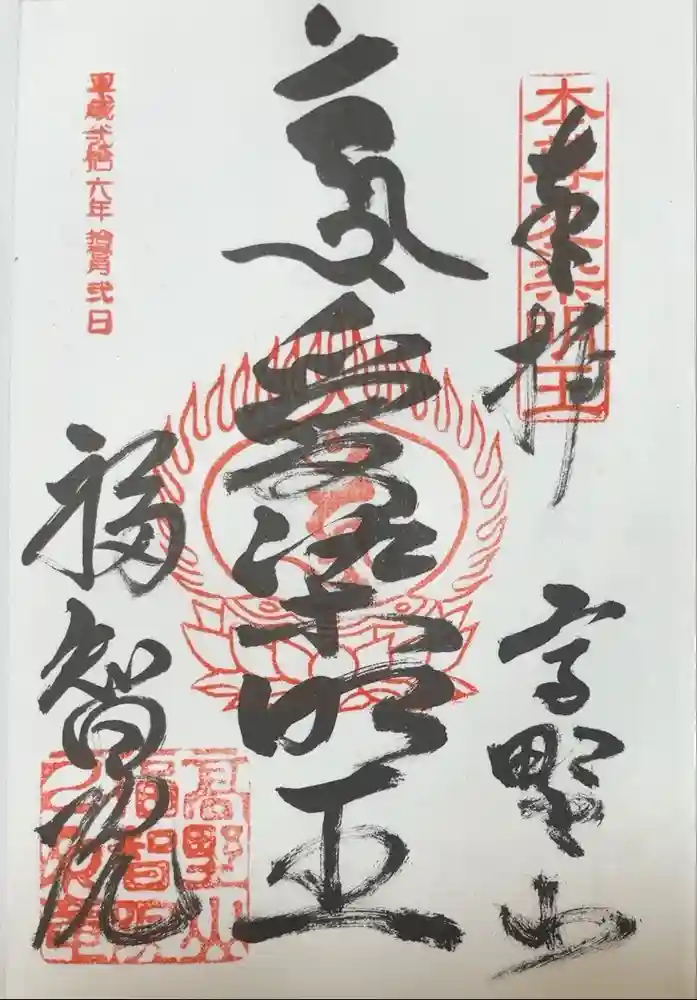 本尊愛染明王
奉拝
高野山
愛染明王
平成弐拾六年 月弐日
福智院
高野山
福智院
之印章